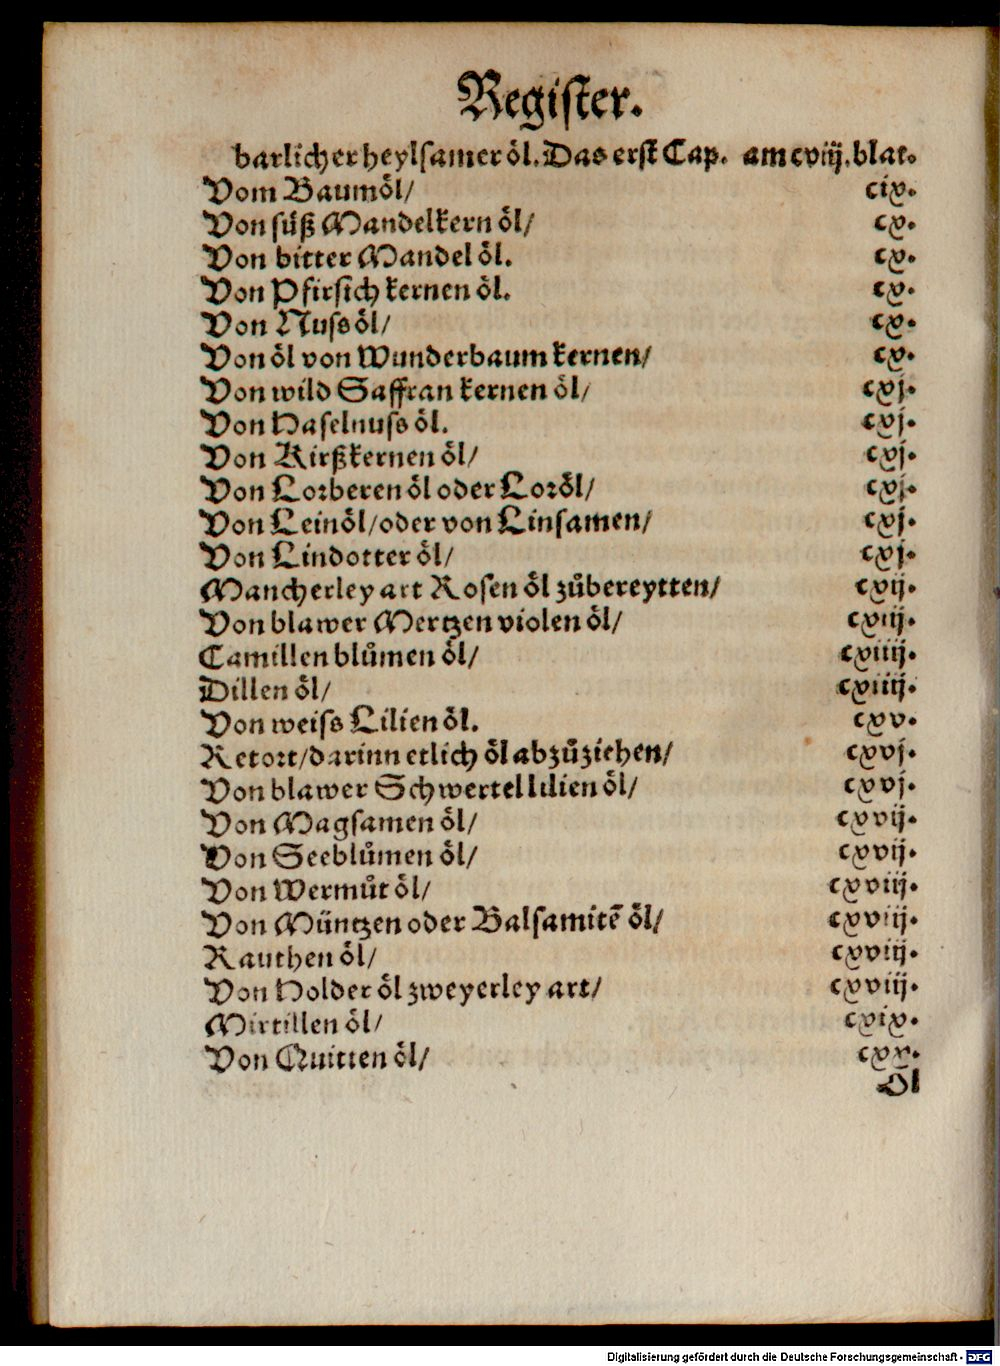 Register.
barlicher heylsamer öl. Das erst Cap. am cviij. blat.
Vom Baumöl/ cix.
Von süß Mandelkern öl/ cx.
Von bitter Mandel öl. cx.
Von Pfirsich kernen öl. cx.
Von Nuss öl/ cx.
Von öl von Wunderbaum kernen/ cx.
Von wild Saffran kernen öl/ cxj.
Von Haselnuss öl. cxj.
Von Kirßkernen öl/ cxj.
Von Lorberen öl oder Loröl/ cxj.
Von Leinöl/oder von Linsamen/ cxj.
Von Lindotter öl/ cxj.
Mancherley art Rosen öl zůbereytten/ cxij.
Von blawer Mertzen violen öl/ cxiij.
Camillen blůmen öl/ cxiiij.
Dillen öl/ cxiiij.
Von weiss Lilien öl. cxv.
Retort/darinn etlich öl abzůziehen/ cxvj.
Von blawer Schwertel lilien öl/ cxvj.
Von Magsamen öl/ cxvij.
Von Seeblůmen öl/ cxvij.
Von Wermůt öl/ cxviij.
Von Müntzen oder Balsamitē öl/ cxviij.
Rauthen öl/ cxviij.
Von Holder öl zweyerley art/ cxviij.
Mirtillen öl/ cxix.
Von Quitten öl/ cxx.
Öl
Digitalisierung gefördert durch die Deutsche Forschungsgemeinschaft - DFG